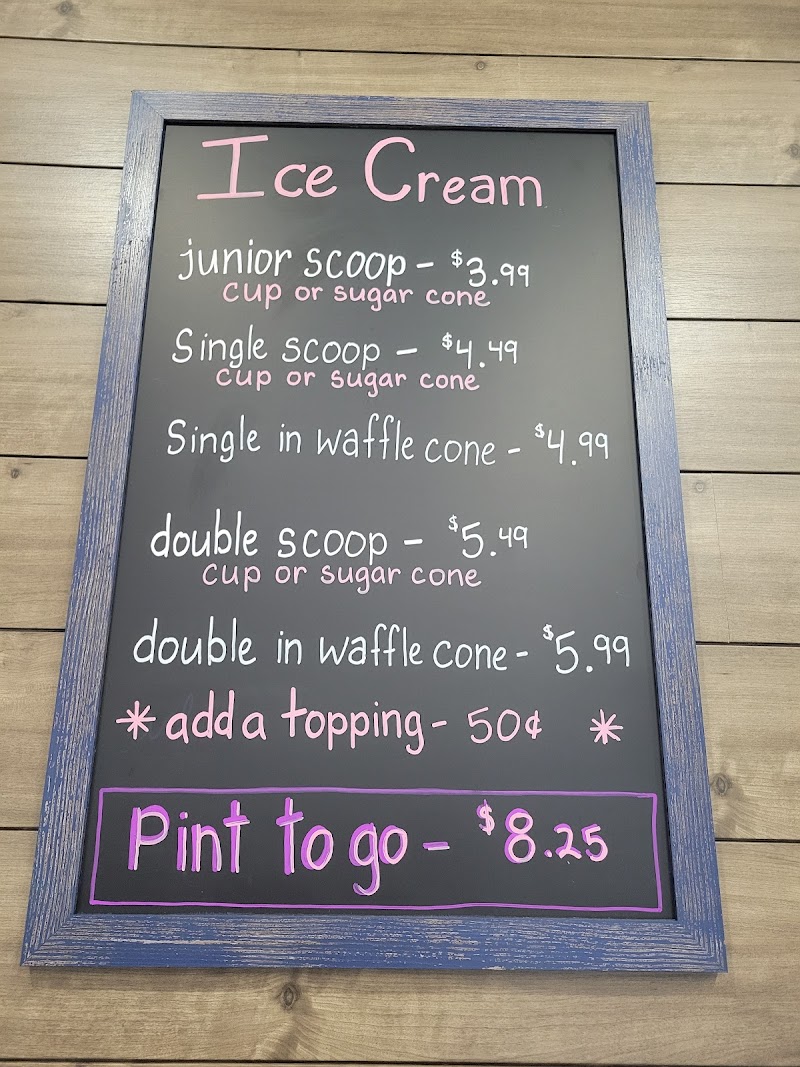 Ice Cream
junior scoop - $3.99
cup or sugar cone
Single scoop - $4.49
cup or sugar cone
Single in waffle cone - $4.99
double scoop - $5.49
cup or sugar cone
double in waffle cone - $5.99
* add a topping - 50¢ *
Pint to go - $8.25